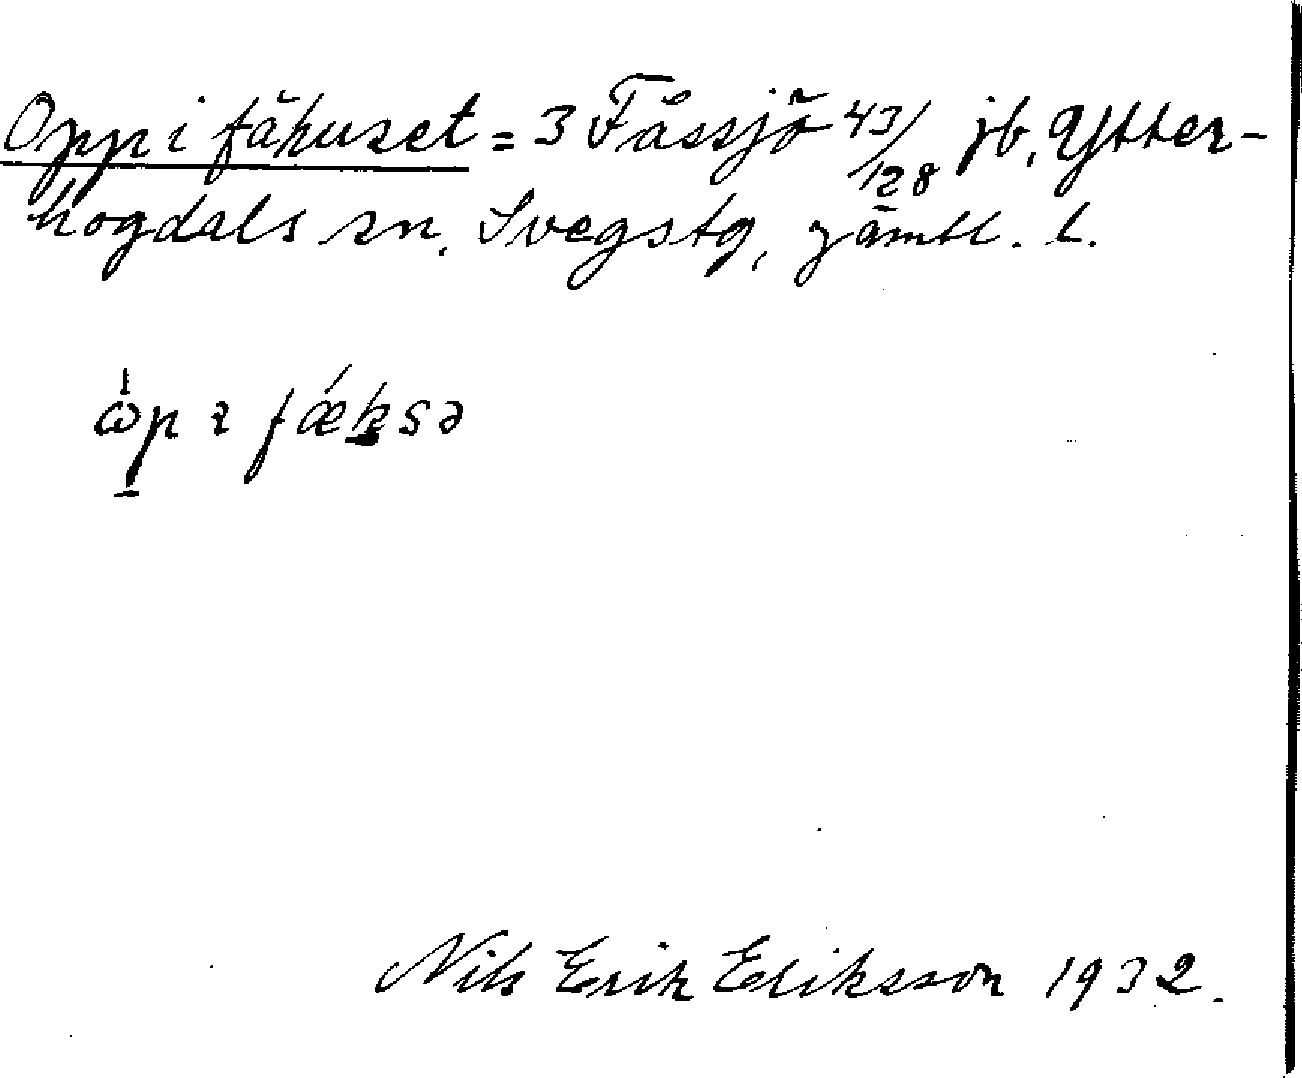 Opp i fähuset = 3 Fåssjö 43/128 jb, Ytter-
hogdals sn, Svegs tg, Jämtl. l.
ὼp ɩ fǽksə
Nils Erik Eriksson 1932.